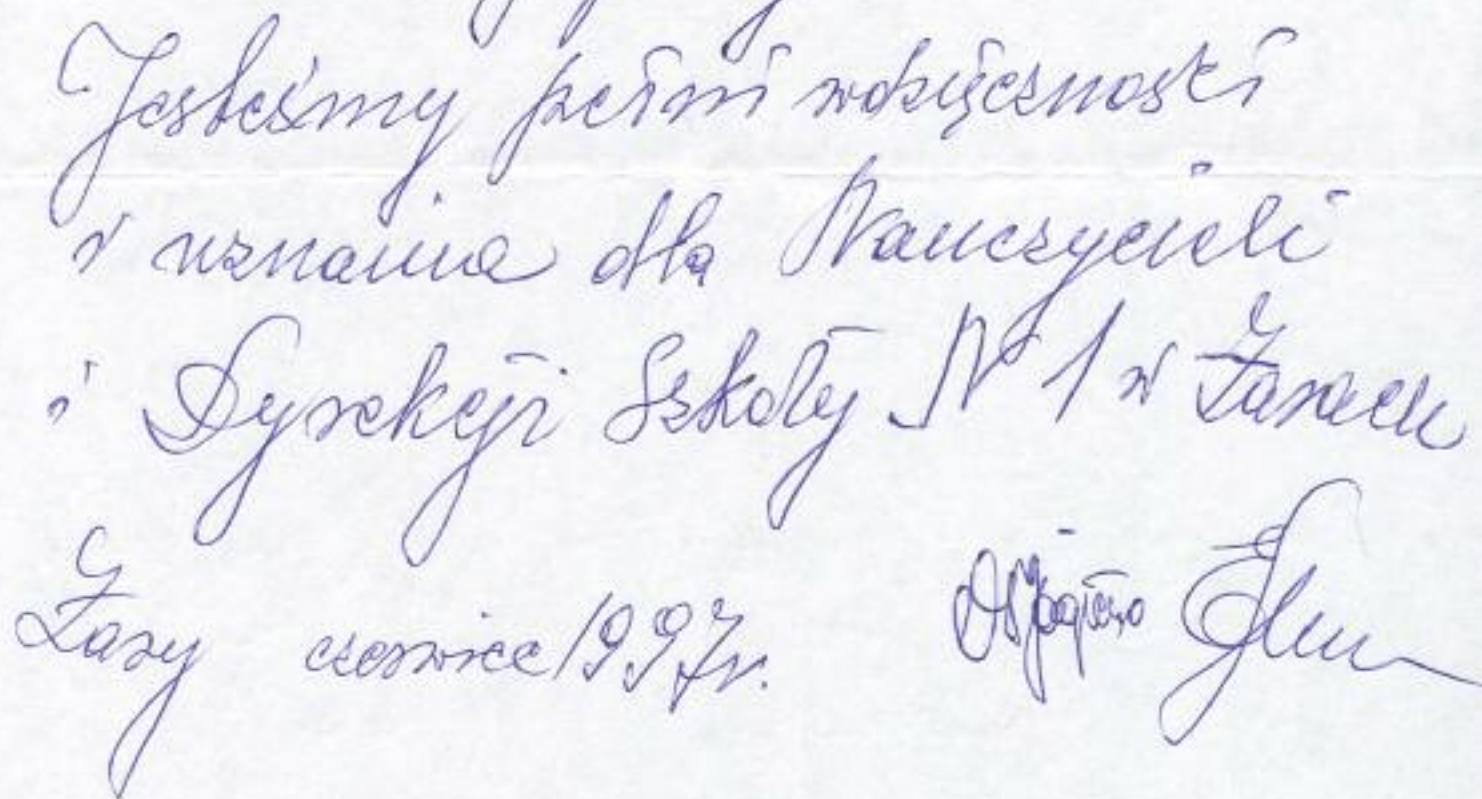 Jesteśmy pełni wdzięczności
i uznania dla Nauczycieli
i Dyrekcji Szkoły N 1 w Żarach
Żary czerwiec 1997r.